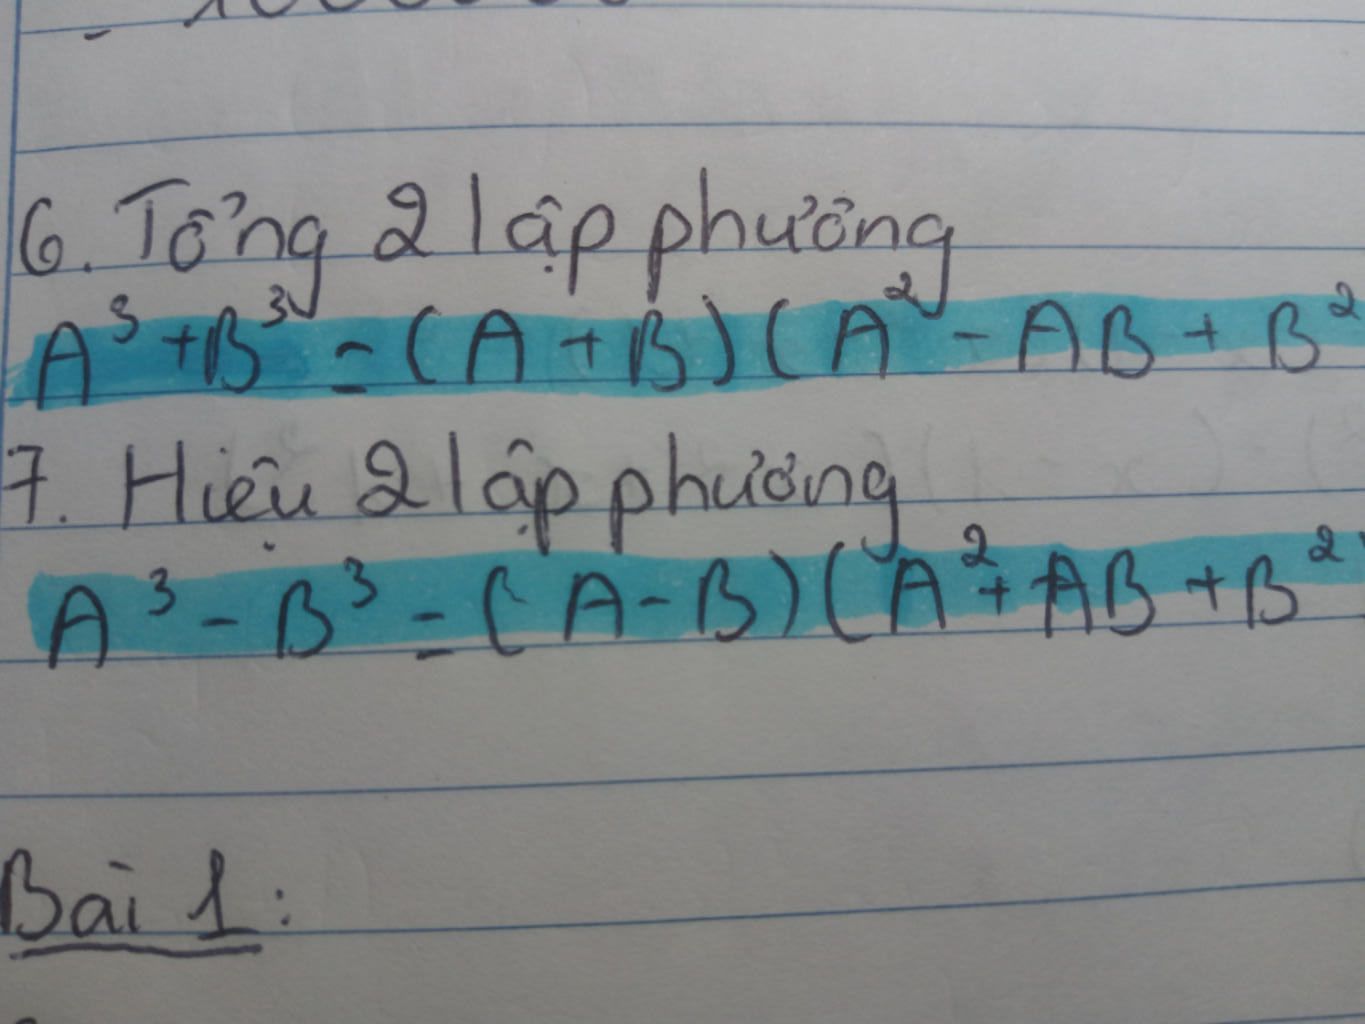 6. Tổng 2 lập phương
A³ + B³ = (A + B) (A² - AB + B²
7. Hiệu 2 lập phương
A³ - B³ = (A - B) (A² + AB + B²
Bài 1: